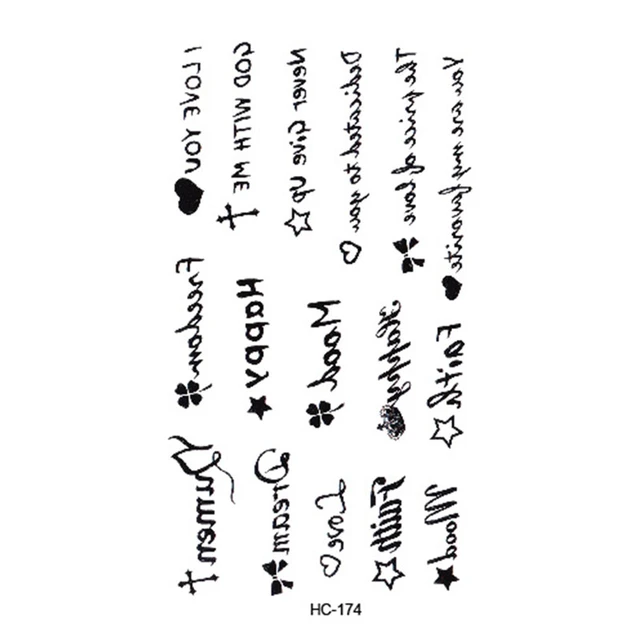 I LOVE YOU
GOD WITH ME
Never Give Up
Dedicated to you
The price of love
You are my favorite
Freedom
Happy
Mood
Happy
Faith
Dream
Love
Faith
Mood
HC-174